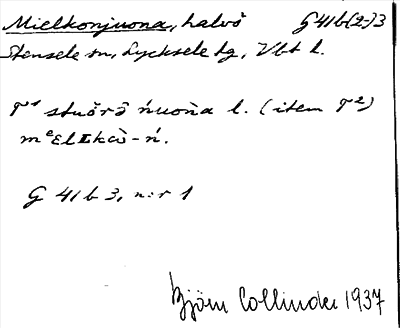 Mielkonjuona, halvö G 41b(2-)3
Stensele sn, Lycksele lg, Vbt l.
T¹ stuŏrə̂ ńuońa l. (item T²)
mᵉɛlɪkaȯ̀-ń.
G 41 b 3, n:r 1
Björn Collinder 1937